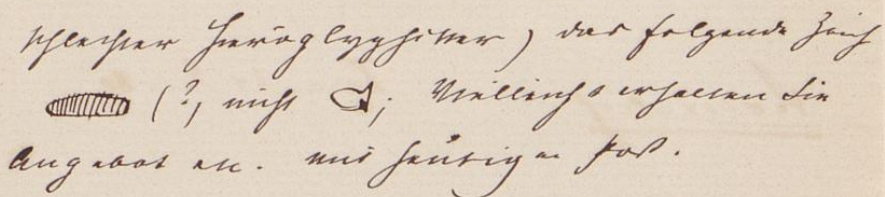 schlechter Hieroglyphiker) das folgende Zeich
(?, nicht ; Vielleicht erhalten Sie
Angebot etc. mit heutiger Post.